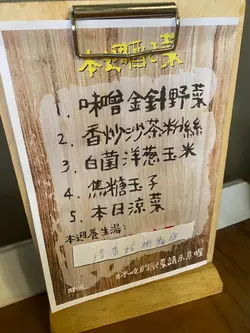 本週隨菜
1. 味噌金針野菜
2. 香炒沙茶粉絲
3. 白菌洋蔥玉米
4. 焦糖玉子
5. 本日涼菜
本週養生湯: